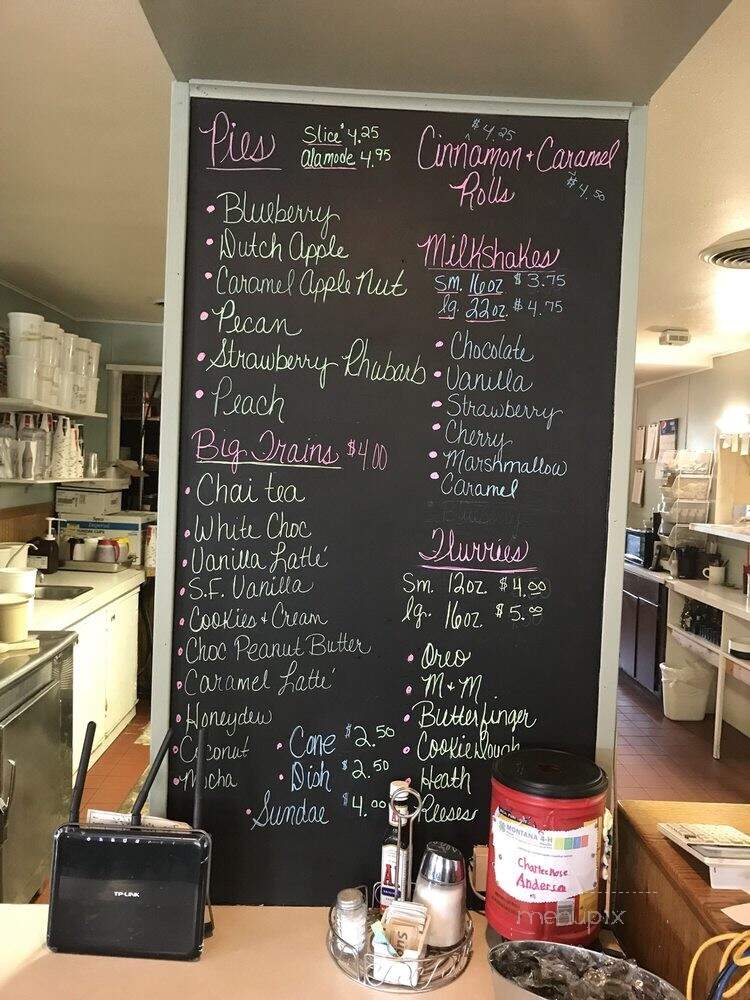 Pies
Slice $4.25
alamode 4.95
Blueberry
Dutch Apple
Caramel Apple Nut
Pecan
Strawberry Rhubarb
Peach
Big Trains $4.00
Chai tea
White Choc
Vanilla Latté
S.F. Vanilla
Cookies + Cream
Choc Peanut Butter
Caramel Latté
Honeydew
Coconut
Mocha
Cone $2.50
Dish $2.50
Sundae $4.00
$4.25
Cinnamon + Caramel
Rolls
$4.50
Milkshakes
Sm. 16oz $3.75
lg. 22oz. $4.75
Chocolate
Vanilla
Strawberry
Cherry
Marshmallow
Caramel
Flurries
Sm. 12oz. $4.00
lg. 16oz. $5.00
Oreo
M+M
Butterfinger
Cookie Dough
Heath
Reeses
TP-LINK
MONTANA 4-H
CharleeRose
Anderson
menupix